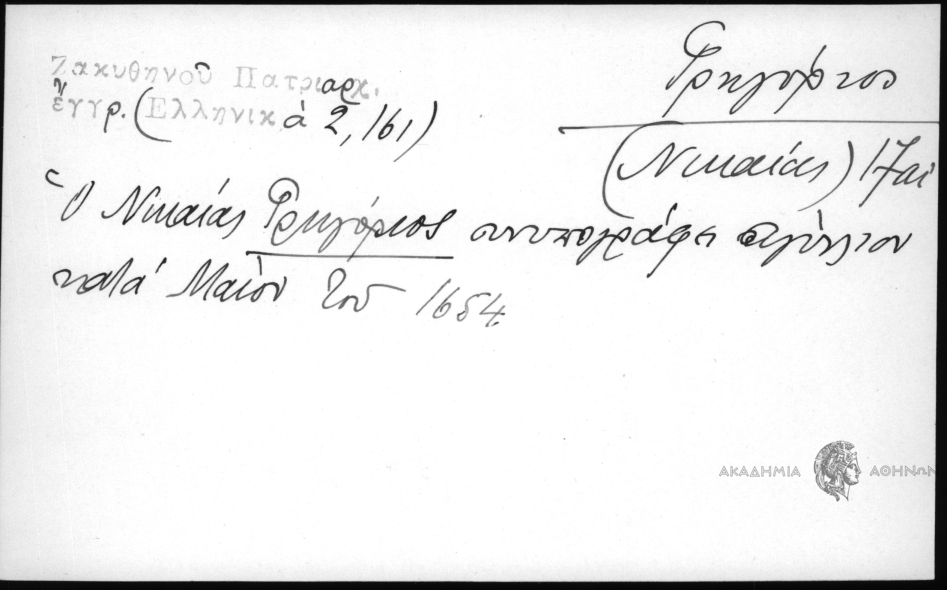 Ζακυθηνοῦ Πατριαρχ.
ἔγγρ. (Ἑλληνικὰ 2, 161)
Γρηγόριος
(Νικαίας) 17 αἰ
Ὁ Νικαίας Γρηγόριος συνυπογράφει σιγίλλιον
κατὰ Μάϊον τοῦ 1654.
ΑΚΑΔΗΜΙΑ ΑΘΗΝΩΝ